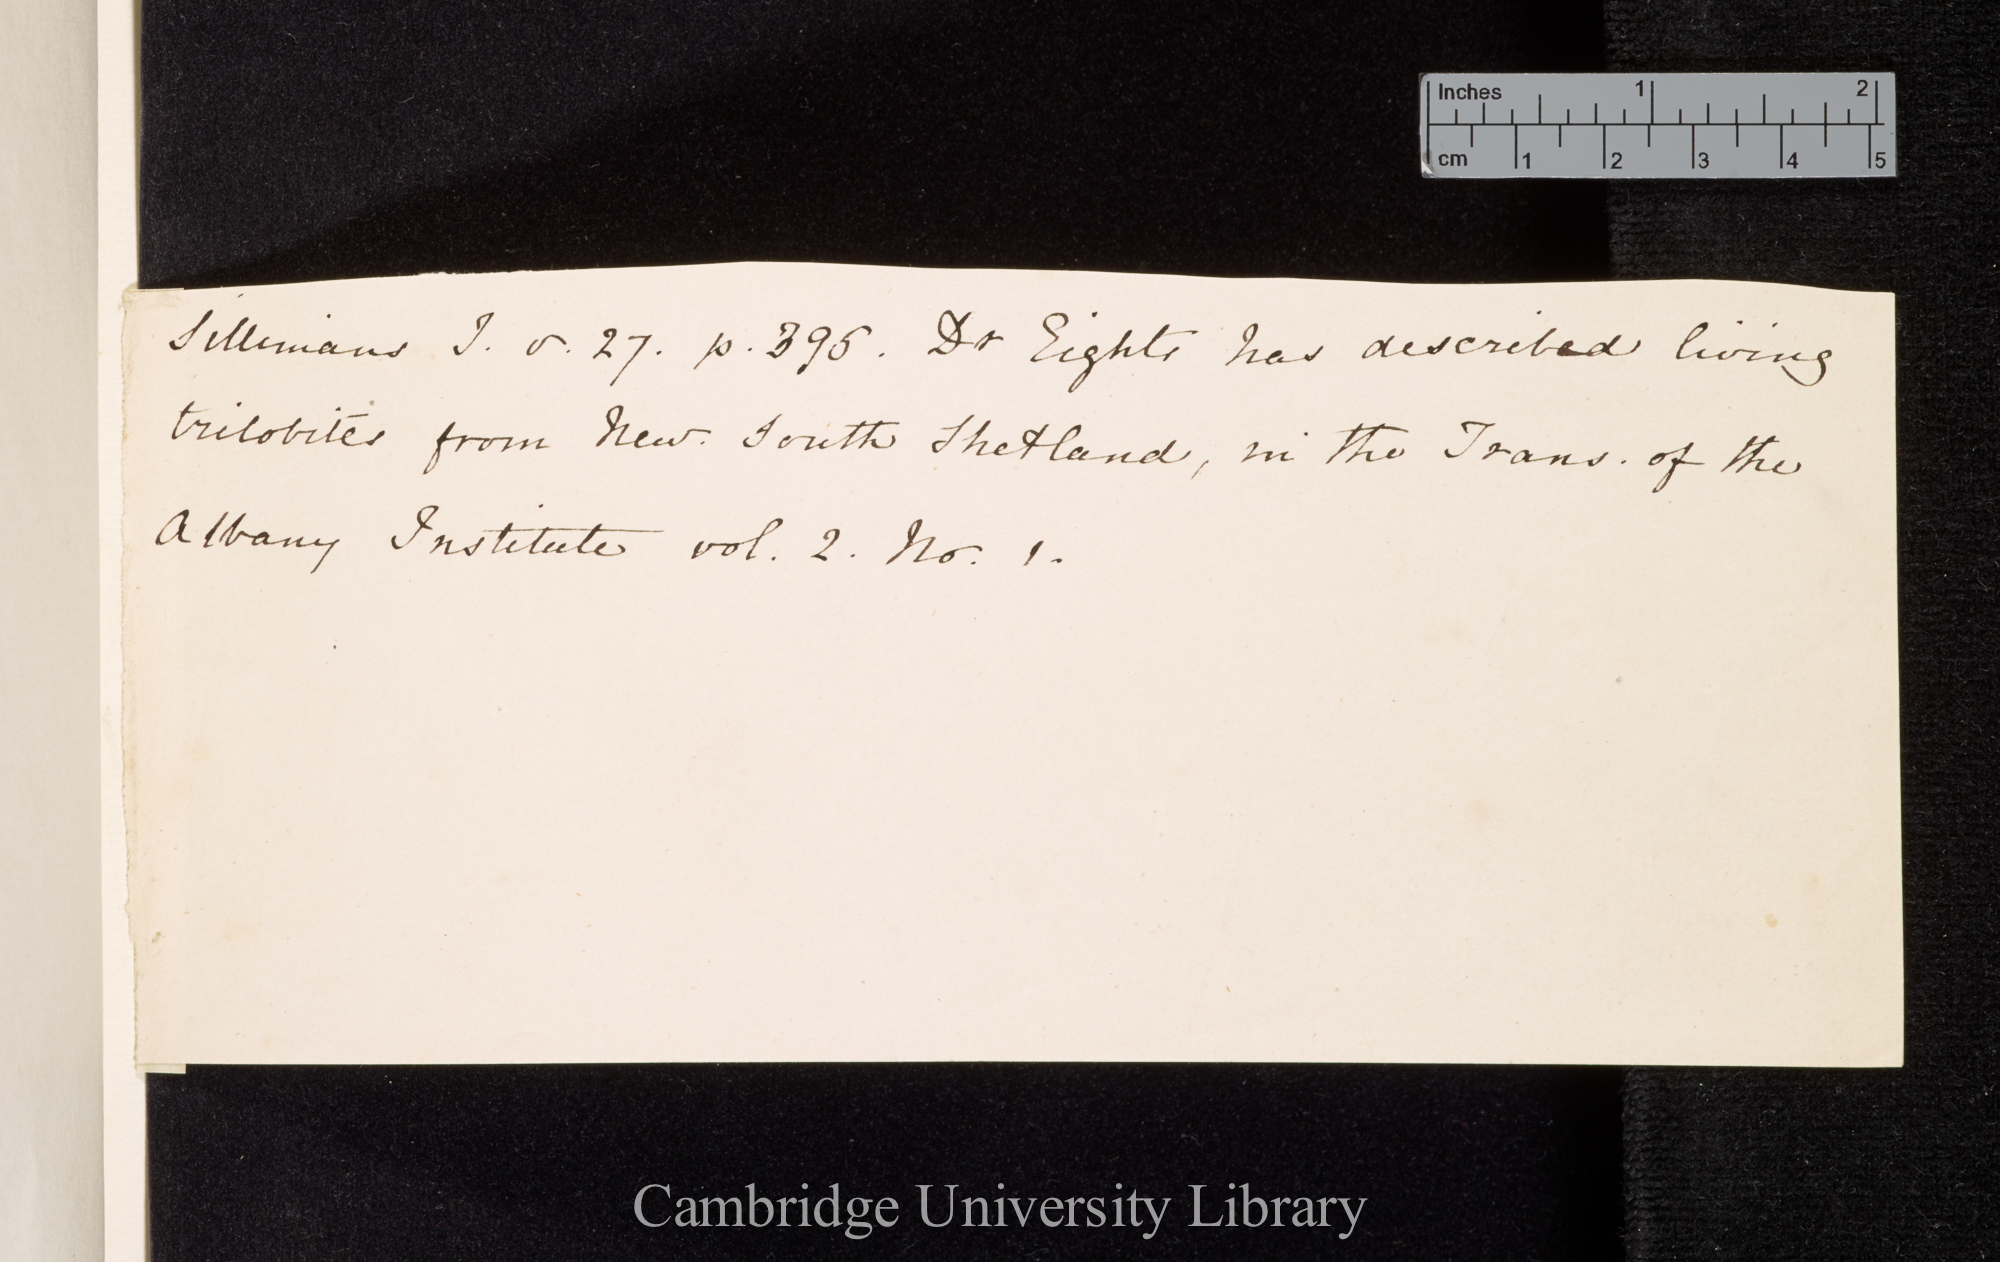 Inches 1 2
cm 1 2 3 4 5
Sillimans J. v. 27. p. 395. Dr Eights has described living
trilobites from New South Shetland, in the Trans. of the
Albany Institute vol. 2. No. 1.
Cambridge University Library